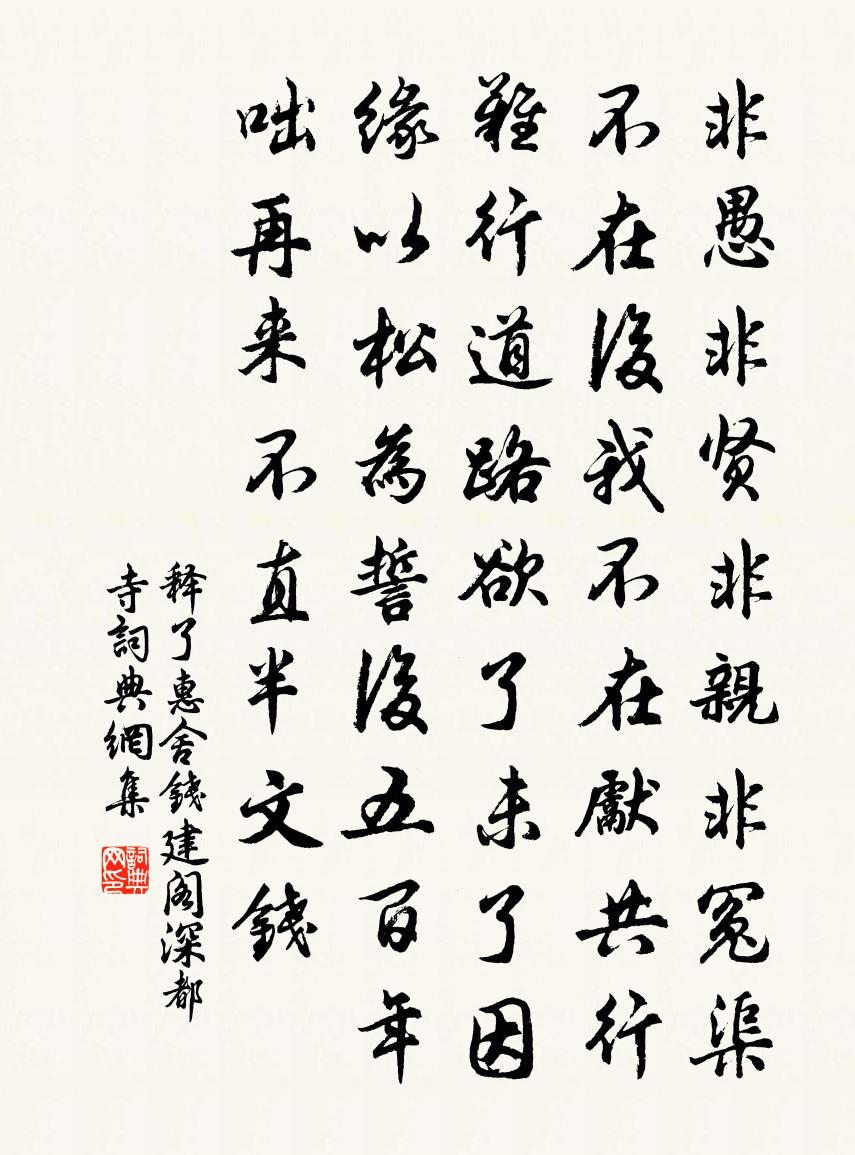 非愚非贤非親非冤渠
不在後我不在獻共行
難行道路欲了未了因
緣以松為誓後五百年
咄再来不直半文錢
释了惠舍錢建阁深都
寺詞典網集
詞典
网印